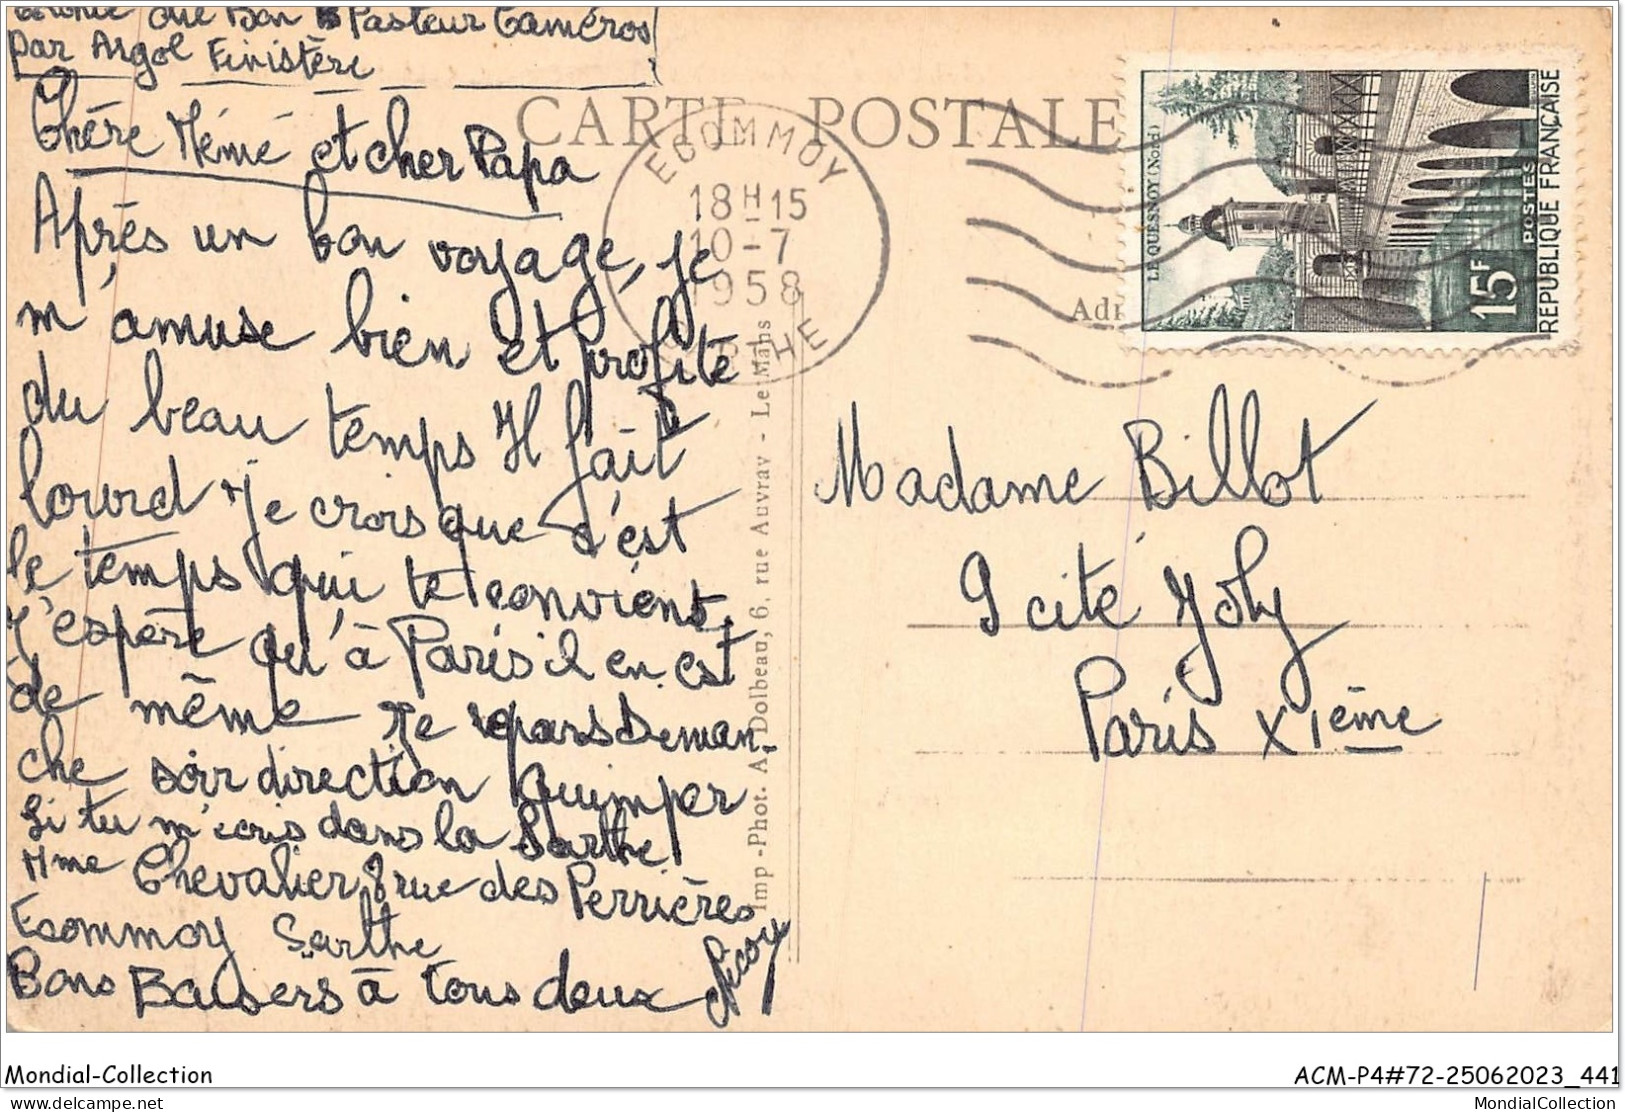 Colonie du Bon Pasteur Caméros
par Argol Finistère
Chère Mémé et cher Papa
Après un bon voyage, je
m'amuse bien et profite
du beau temps Il fait
lourd je crois que c'est
le temps qui te convient,
J'espère qu'à Paris il en est
de même Je pars Deman-
che soir direction Quimper
Si tu m'écris dans la Sarthe
Mme Chevalier 8 rue des Perrières
Ecommoy Sarthe
Bons Baisers à tous deux
CARTE POSTALE
ECOMMOY
18H15
10-7
1958
SARTHE
LE QUESNOY (Nord)
15F
POSTES
REPUBLIQUE FRANÇAISE
Adr
Imp -Phot. A. Dolbeau, 6, rue Auvray - Le Mans
Madame Billot
9 cité Joly
Paris XIème
Mondial-Collection
ACM-P4#72-25062023_441
delcampe.net
MondialCollection